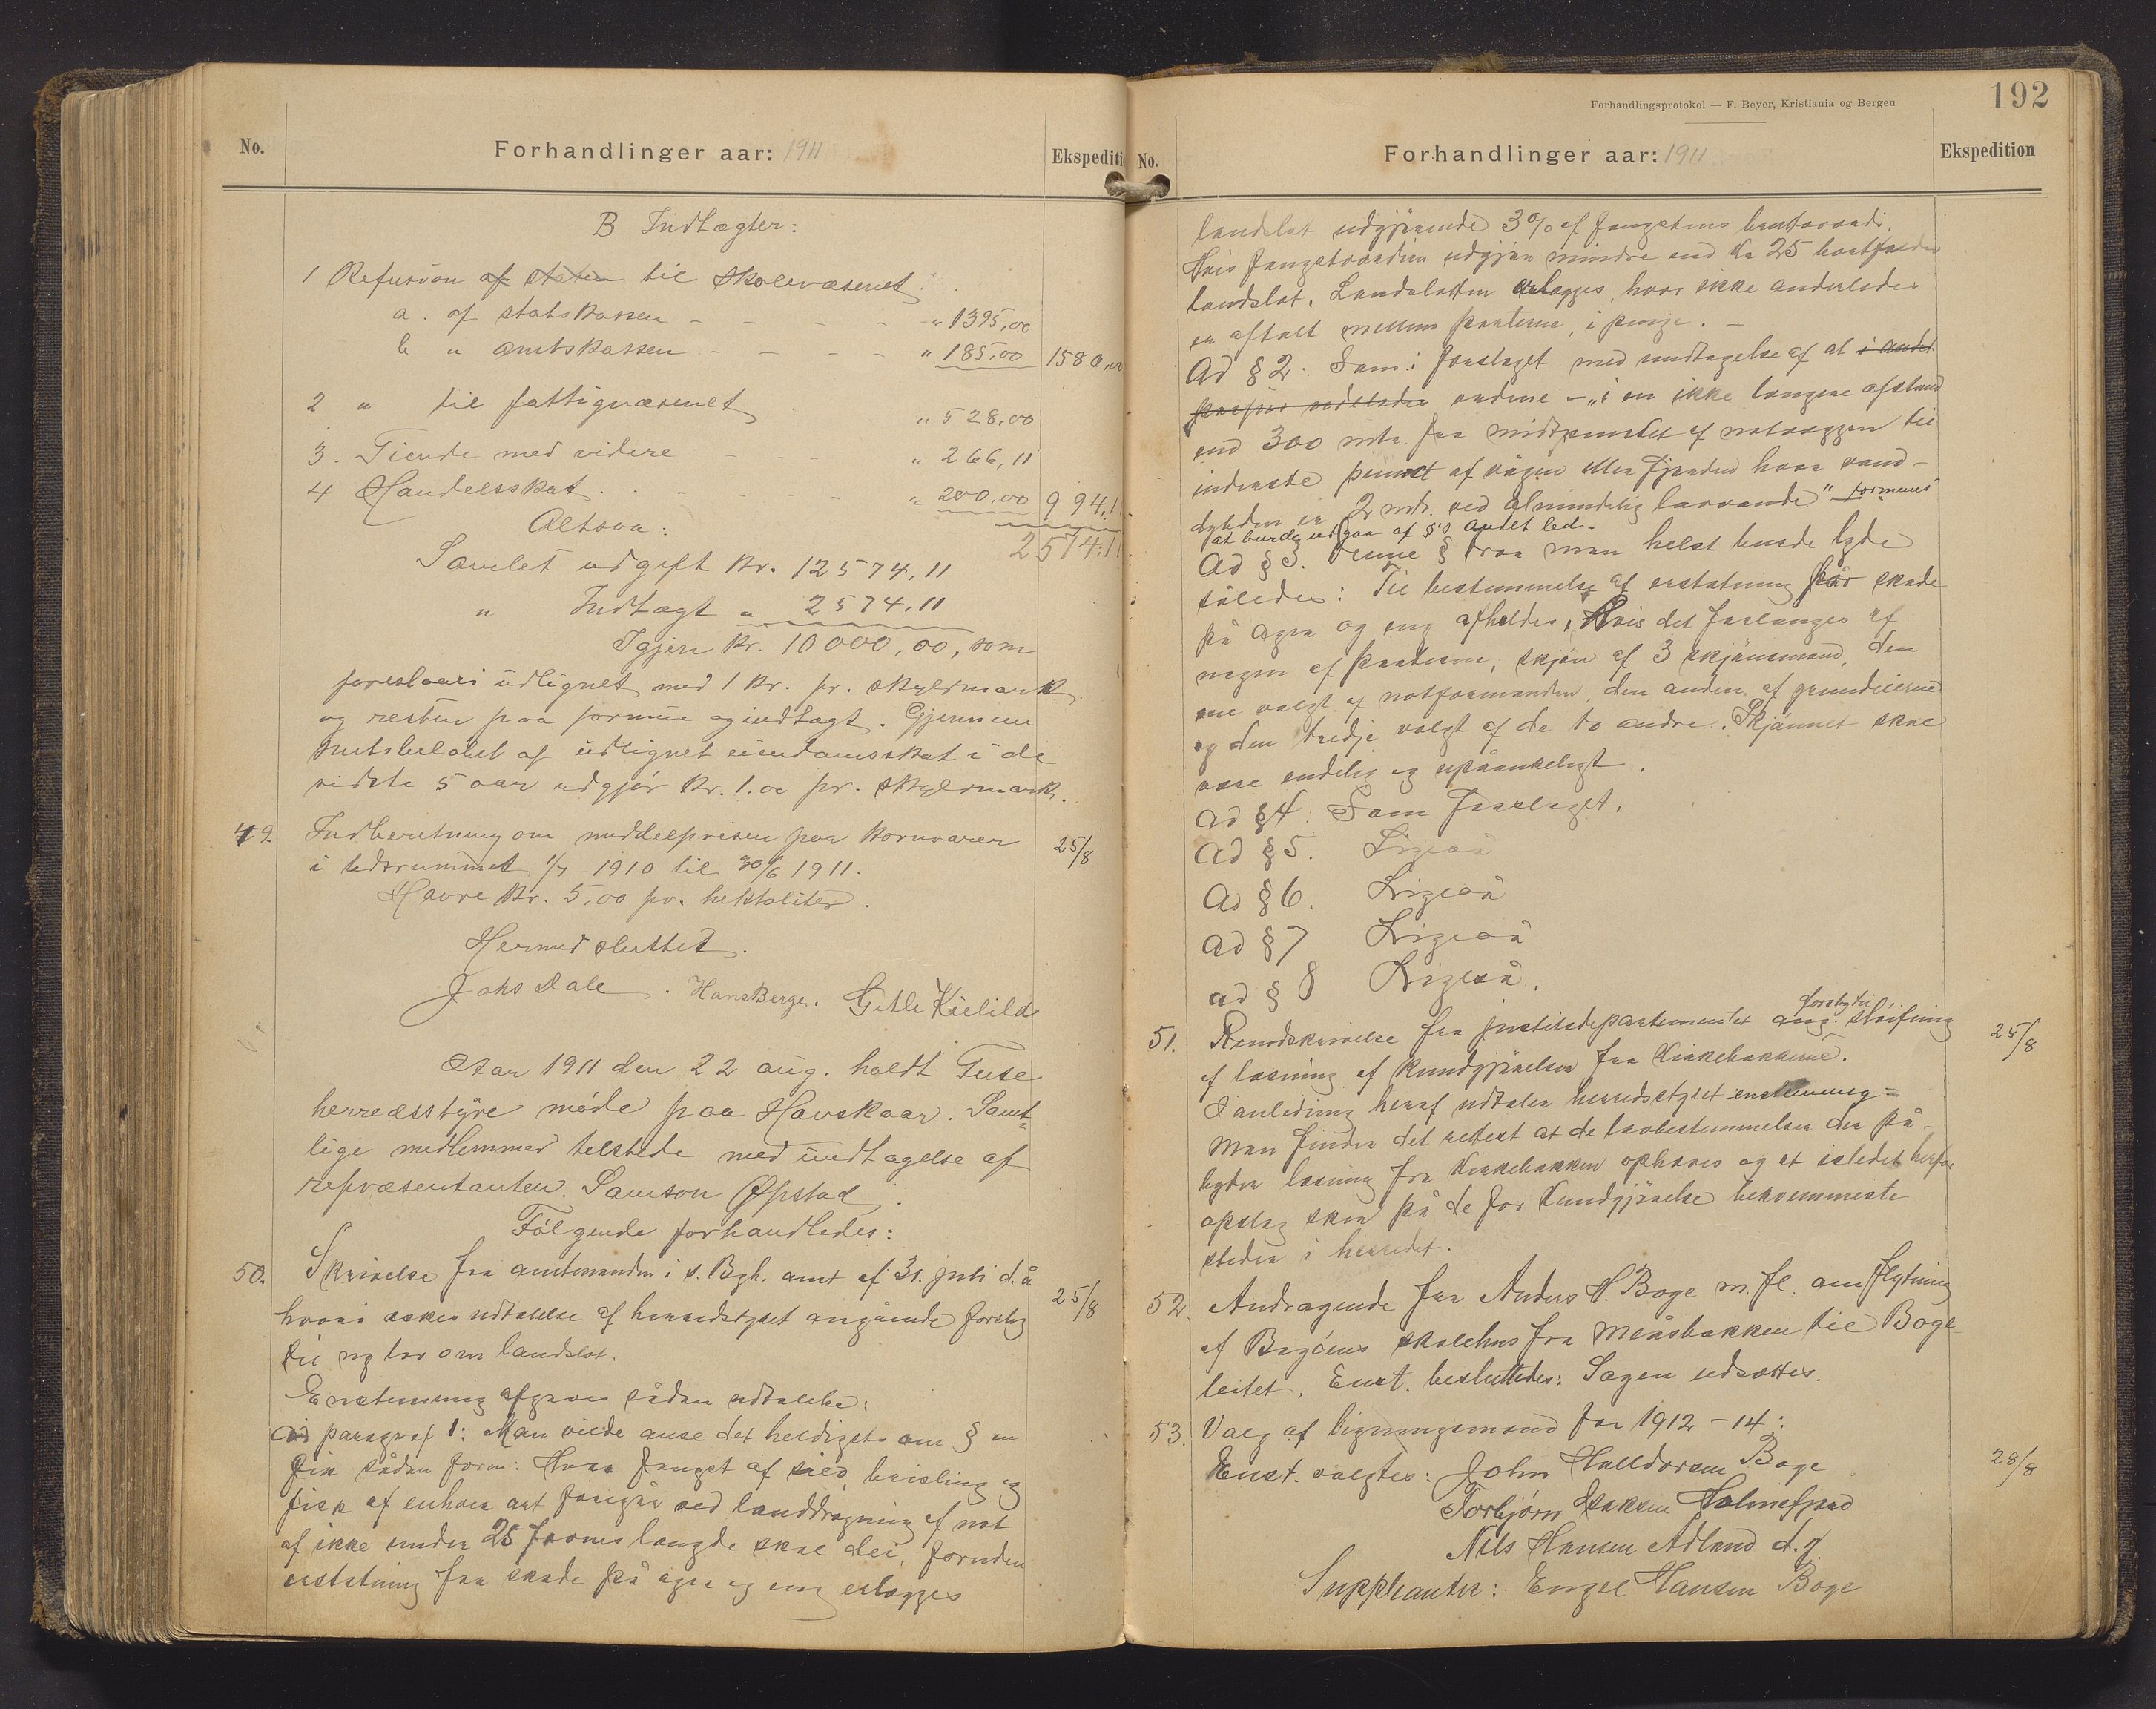 No.
Forhandlinger aar: 1911
Ekspediti
B Indtægter:
1 Refusion af staten til skolevæsenet
a. af statskassen - - - - " 1395,00
b " amtskassen - - - - " 185,00 1580,00
2 " til fattigvæsenet " 528,00
3. Tiende med videre - - - " 266,11
4 Handelsskat. - - - - " 200,00 994,11
Altsaa: 2574,11
Samlet udgift kr. 12574,11
" Indtægt " 2574,11
Igjen kr. 10000,00, som
foreslaaes udlignet med 1 kr. pr. skyldmark
og resten paa formue og indtægt. Gjennem
snitsbeløbet af udlignet eiendomsskat i de
sidste 5 aar udgjør kr. 1.00 pr. skyldmark.
49. Indberetning om middelprisen paa kornvarer 25/8
i tidsrummet 1/7 1910 til 30/6 1911.
Havre kr. 5,00 pr. hektoliter.
Hermed sluttet.
Johs Dale. Hans Berge. Gitle Kielild
Aar 1911 den 22 aug. holdt Fuse
herredsstyre møde paa Havskaar. Samt=
lige medlemmer tilstede med undtagelse af
repræsentanten Samson Øpstad.
Følgende forhandledes:
50. Skrivelse fra amtmanden i s. Bgh. amt af 31. juli d.å 25/8
hvori æskes udtalelse af herredstyret angående forslag
til ny lov om landslot.
Enstemmig afgaves sådan udtalelse:
Ad paragraf 1: Man vilde anse det heldigst om § en
fik sådan form: Hvor fangst af sild, brisling og
fisk af enhver art foregår ved landdragning af not
af ikke under 25 favnes længde skal der, foruden
erstatning for skade på ager og eng erlægges
Forhandlingsprotokol — F. Beyer, Kristiania og Bergen
192
No.
Forhandlinger aar: 1911
Ekspedition
landslot udgjørende 3% af fangstens bruttoværdi.
Hvis fangstværdien udgjør mindre end kr 25 bortfalder
landslot. Landslotten erlægges, hvor ikke anderledes
er aftalt mellem parterne, i penge. -
Ad § 2. Som i forslaget med undtagelse af at i andet
ordene - "i en ikke længere afstand
end 300 mtr. fra midtpunktet af notvæggen til
inderste punkt af vågen eller fjorden hvor vand-
dybden er 2 mtr. ved almindelig lavvande" formenes
at burde udgaa af §'s andet led.
Ad § 3. Denne § tror man helst burde lyde
således: Til bestemmelse af erstatning for skade
på ager og eng afholdes, Hvis det forlanges af
nogen af parterne, skjøn af 3 skjønsmænd, den
ene valgt af notformanden, den anden af grundeierne
og den tredje valgt af de to andre. Skjønnet skal
være endelig og upåankeligt.
Ad § 4. Som forslaget.
Ad § 5. Ligeså
Ad § 6. Ligeså
Ad § 7 Ligeså
Ad § 8 Ligeså.
forslag til
51. Rundskrivelse fra justitsdepartementet ang. sløifning 25/8
af læsning af kundgjørelser fra kirkebakkerne.
I anledning heraf udtaler herredsstyret enstemmig =
Man finder det rettest at de lovbestemmelser der på-
byder læsning fra kirkebakken ophæves og at istedet herfor
opslag sker på de for kundgjørelse bekvemmeste
steder i herredet.
52. Andragende fra Anders H. Boge m.fl. om flytning
af Bogøens skolehus fra Menåsbakken til Boge
leitet. Enst. besluttedes: Sagen udsættes.
53. Valg af ligningsmænd for 1912 - 14:
Enst. valgtes: John Halldorsen Boge 28/8
Torbjørn Isaksen Holmefjord
Nils Hansen Adland d.y.
Suppleanter: Engel Hansen Boge